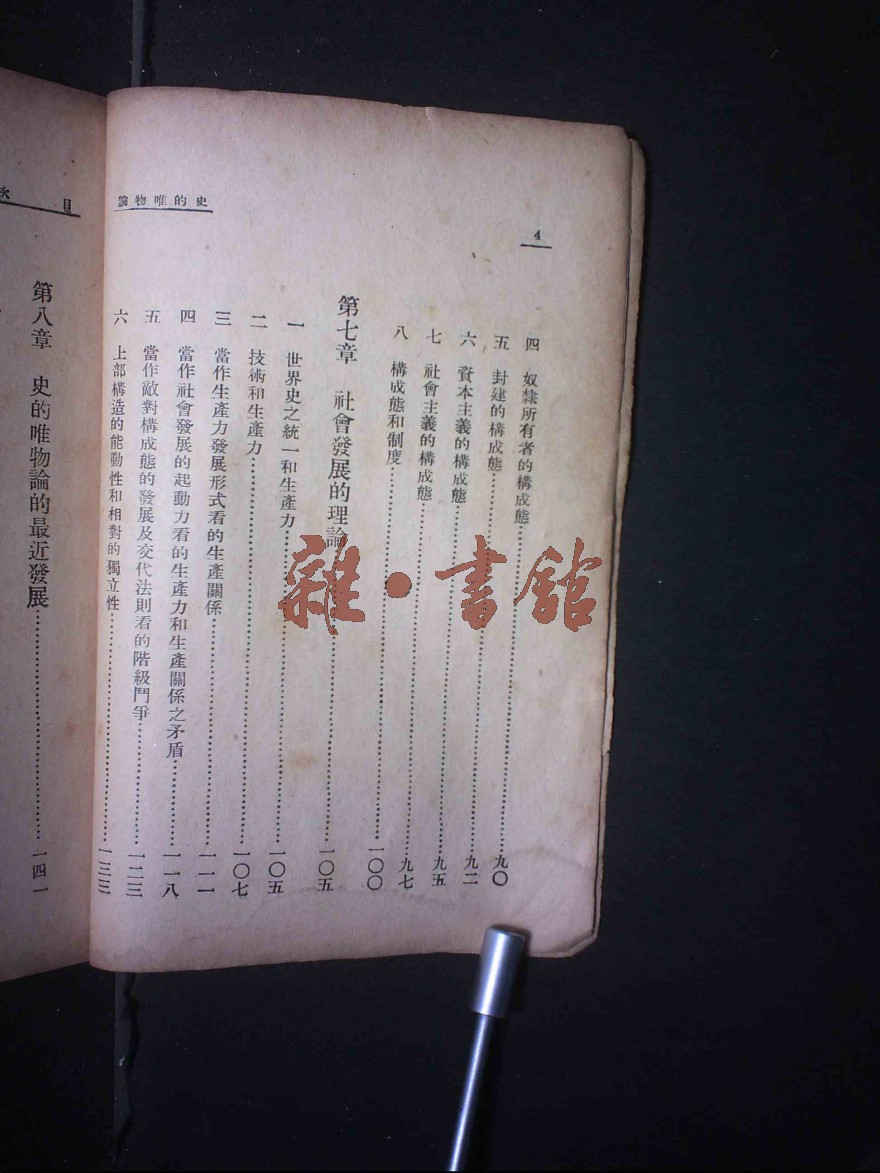 4
史的唯物論
四　奴隸所有者的構成態……九〇
五　封建的構成態……九二
六　資本主義的構成態……九五
七　社會主義的構成態……九七
八　構成態和制度……一〇〇
第七章　社會發展的理論……一〇五
一　世界史之統一和生產力……一〇五
二　技術和生產力……一〇七
三　當作生產力發展形式看的生產關係……一一一
四　當作社會發展的起動力看的生產力和生產關係之矛盾……一一八
五　當作敵對構成態的發展及交代法則看的階級鬥爭……一二三
六　上部構造的能動性和相對的獨立性……一三三
目次
第八章　史的唯物論的最近發展……一四一
雜·書館